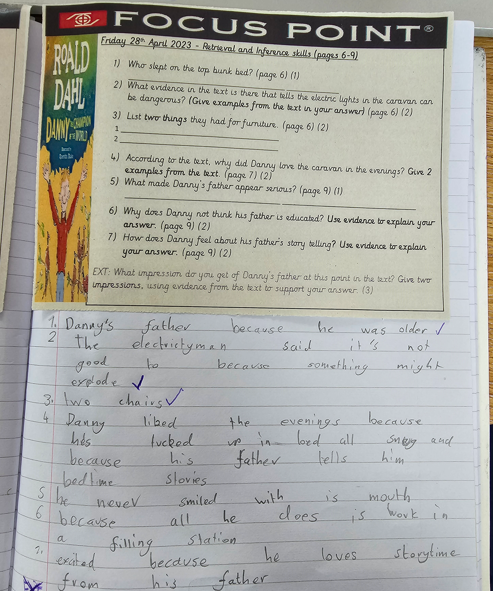 FOCUS POINT®
Friday 28th April 2023 - Retrieval and Inference skills (pages 6-9)
ROALD
DAHL
DANNY THE CHAMPION
OF THE WORLD
1) Who slept on the top bunk bed? (page 6) (1)
2) What evidence in the text is there that tells the electric lights in the caravan can
be dangerous? (Give examples from the text in your answer) (page 6) (2)
3) List two things they had for furniture. (page 6) (2)
1
2
4) According to the text, why did Danny love the caravan in the evenings? Give 2
examples from the text. (page 7) (2)
5) What made Danny's father appear serious? (page 9) (1)
6) Why does Danny not think his father is educated? Use evidence to explain your
answer. (page 9) (2)
7) How does Danny feel about his father's story telling? Use evidence to explain
your answer. (page 9) (2)
EXT: What impression do you get of Danny's father at this point in the text? Give two
impressions, using evidence from the text to support your answer. (3)
1. Danny's father because he was older ✓
2 The electrictyman said it's not
good to because something might
explode ✓
3. two chairs ✓
4 Danny liked the evenings because
hes tucked up in bed all snug and
because his father tells him
bedtime stories
5 he never smiled with is mouth
6 because all he does is work in
a filling station
7. exited because he loves storytime
from his father